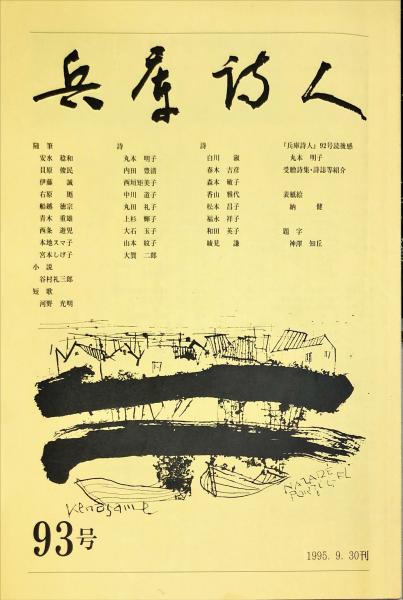 兵庫詩人
随筆
安水 稔和
貝原 俊民
伊藤 誠
右原 厖
船越 徳宗
青木 重雄
西条 遊児
本地スマ子
宮本しげ子
小説
谷村礼三郎
短歌
河野 光明
詩
丸本 明子
内田 豊清
西垣矩美子
中川 道子
丸田 礼子
上杉 輝子
大石 玉子
山本 紋子
大賀 二郎
詩
白川 淑
春木 吉彦
森本 敏子
香山 雅代
松本 昌子
福永 祥子
和田 英子
綾見 謙
「兵庫詩人」92号読後感
丸本 明子
受贈詩集・詩誌等紹介
表紙絵
納 健
題字
神澤 知丘
NAZARÉ
PORTUGAL
93号
1995. 9. 30刊